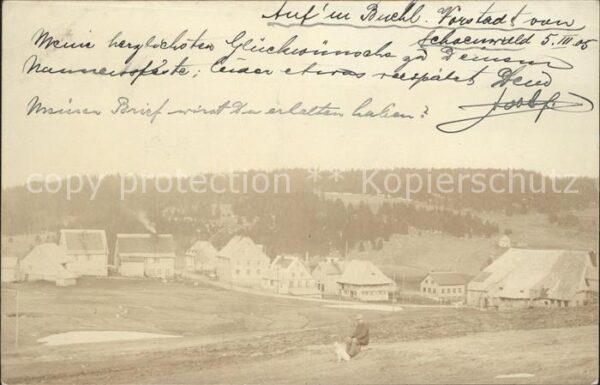 Auf'm Buchl. Vorstadt von
Schoenwald 5. III. 05
Meine herzlichsten Glückwünsche zu Deinem
Namensfeste; leider etwas verspätet. Dein
Meinen Brief wirst Du erhalten haben?
copy protection - Kopierschutz